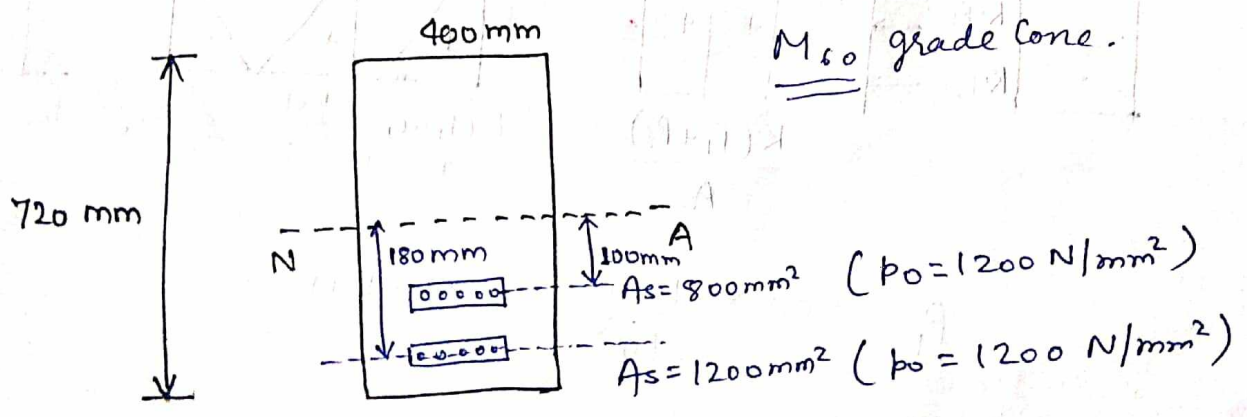 400mm
M60 grade Conc.
720 mm
N
A
180mm
100mm
As=800mm² (po=1200 N/mm²)
As=1200mm² (po=1200 N/mm²)